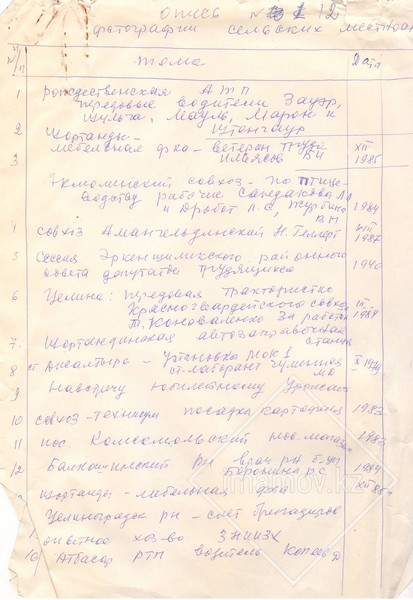 Опись № 12
фотографии сельских местностей
№ п/п тема Дата
1 Рождественская АТП
Передовые водители Зауэр,
Шульга, Мауль, Марон и
Штенгаур
2 Шортанды-
мебельная ф-ка – ветеран труда XII
3 Ильясов ВИ 1985
Экмолинский совхоз – по птице-
водству рабочие Сандакова ЛА
и Дробот Л.С, 1984
ВН
1 совхоз Амангельдинский Н. Геллерт VIII 1987
5 Сессия Эркеншиликского районного
совета депутатов трудящихся 1940
6 Целина: Передовая трактористка
Красногвардейского совхоза III-
Т. Коноваленко за работой 1984
7. Шортандинская автозаправочная
станция
8 ст. Джалтырь – Установка МОК 1 X 1979
ст. лаборант
9 Навстречу юбилейному Урожаю
10 совхоз-техникум посадка картофеля 1983
11 пос. Комсомольский нов. магазин 1983
12 Балкашинский РН врач рн б-цы
Воронина Р.С 1984
Шортанды – мебельная ф-ка XII 85г
Целиноградск рн – слёт бригадиров
опытное хоз-во ЗНИИЗХ
16 Атбасар РТП водитель Копаев Д
imamov.kz